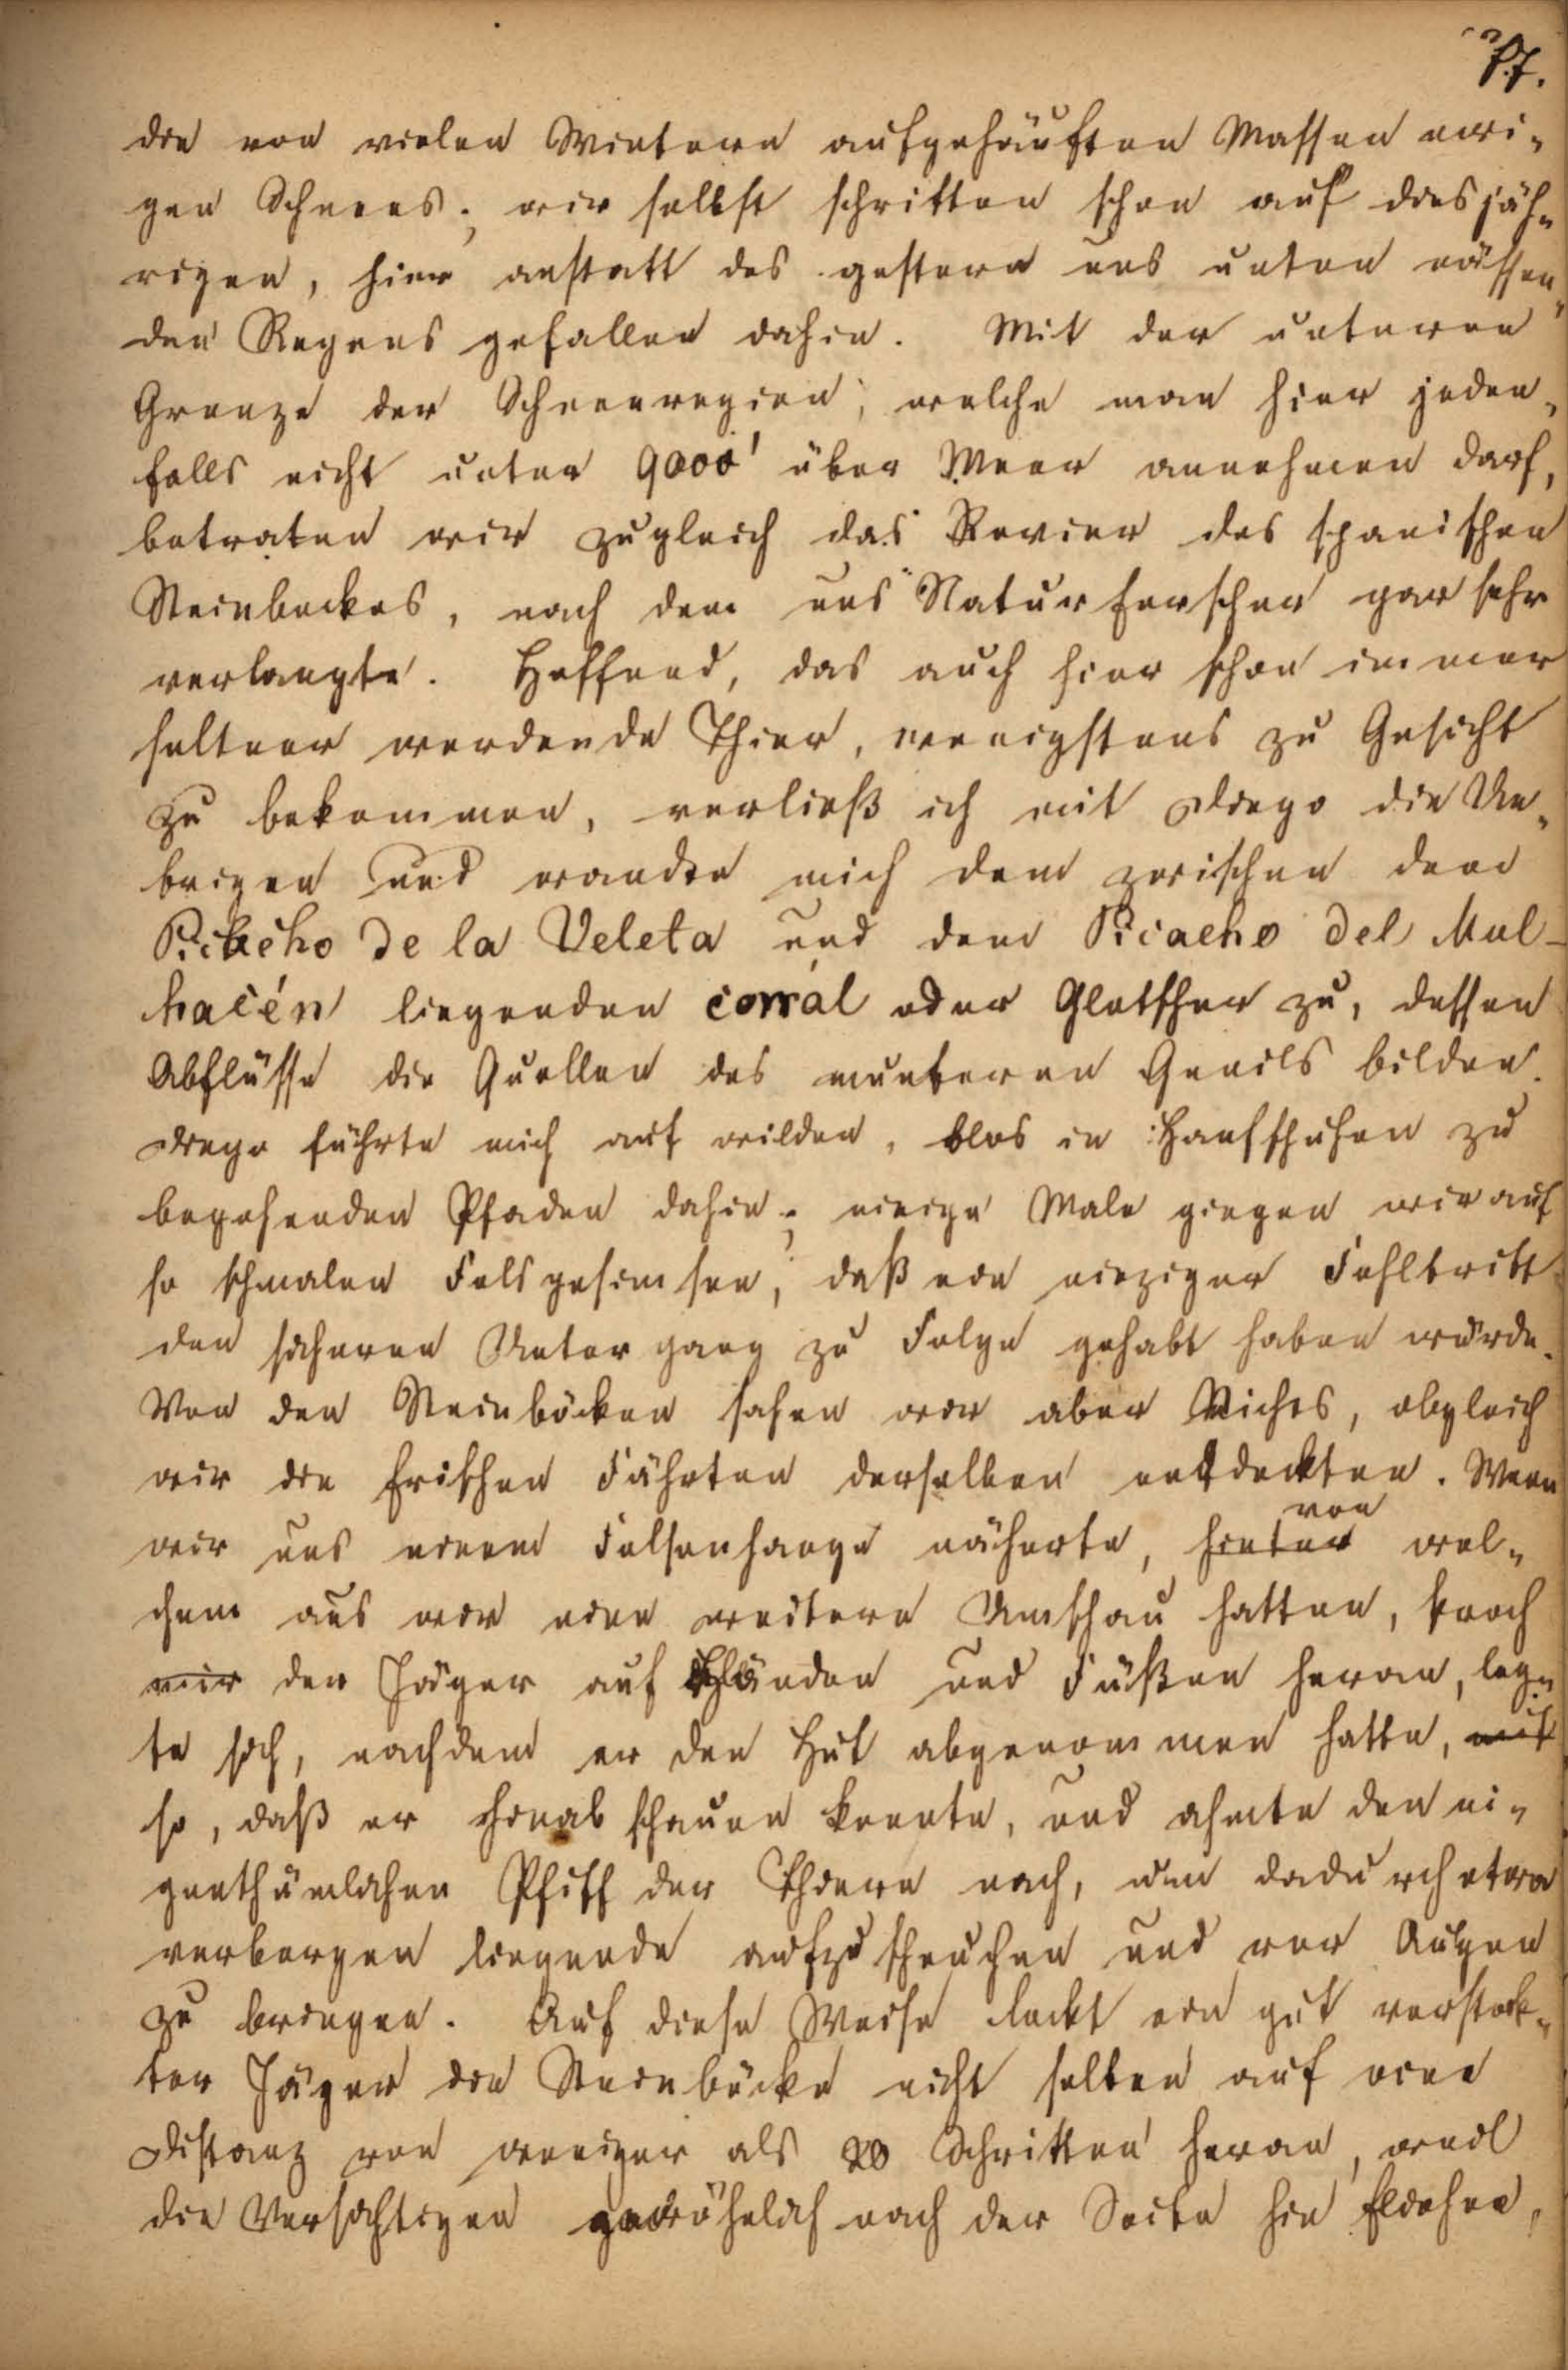 77.
die von vielen Wintern aufgehäuften Massen ewi-
gen Schnees; wir selbst schritten schon auf diesjäh-
rigen, hier anstatt des gestern uns unten nässen-
den Regens gefallen dahin. Mit der unteren
Grenze der Schneeregion, welche man hier jeden-
falls nicht unter 9000' über Meer annehmen darf,
betraten wir zugleich das Revier des spanischen
Steinbockes, nach dem uns Naturforscher gar sehr
verlangte. Hoffend, das auch hier schon immer
seltner werdende Thier, wenigstens zu Gesicht
zu bekommen, verließ ich mit Diego die Ue-
brigen und wandte mich dem zwischen dem
Picacho de la Veleta und dem Picacho del Mul-
hacén liegenden corrál oder Gletscher zu, dessen
Abflüsse die Quellen des munteren Genils bilden.
Diego führte mich auf wilden, blos in Hanfschuhen zu
begehenden Pfaden dahin; einige Male gingen wir auf
so schmalen Felsgesimsen, daß ein einziger Fehltritt
den sicheren Untergang zu Folge gehabt haben würde.
Von den Steinböcken sahen wir aber Nichts, obgleich
wir die frischen Fährten derselben entdeckten. Wenn
wir uns einem Felsenhange näherte, hinter von wel-
chem aus wir eine weitere Umschau hatten, kroch
mir der Jäger auf Händen und Füßen heran, leg-
te sich, nachdem er den Hut abgenommen hatte, auf
so, daß er hinab schauen konnte, und ahmte den ei-
genthümlichen Pfiff der Thiere nach, um dadurch etwa
verborgen liegende aufzuscheuchen und vor Augen
zu bringen. Auf diese Weise lockt ein gut versteck-
ter Jäger die Steinböcke nicht selten auf eine
Distanz von weniger als 20 Schritten heran, weil
die Vorsichtigen gewöhnlich nach der Seite hin fliehen,